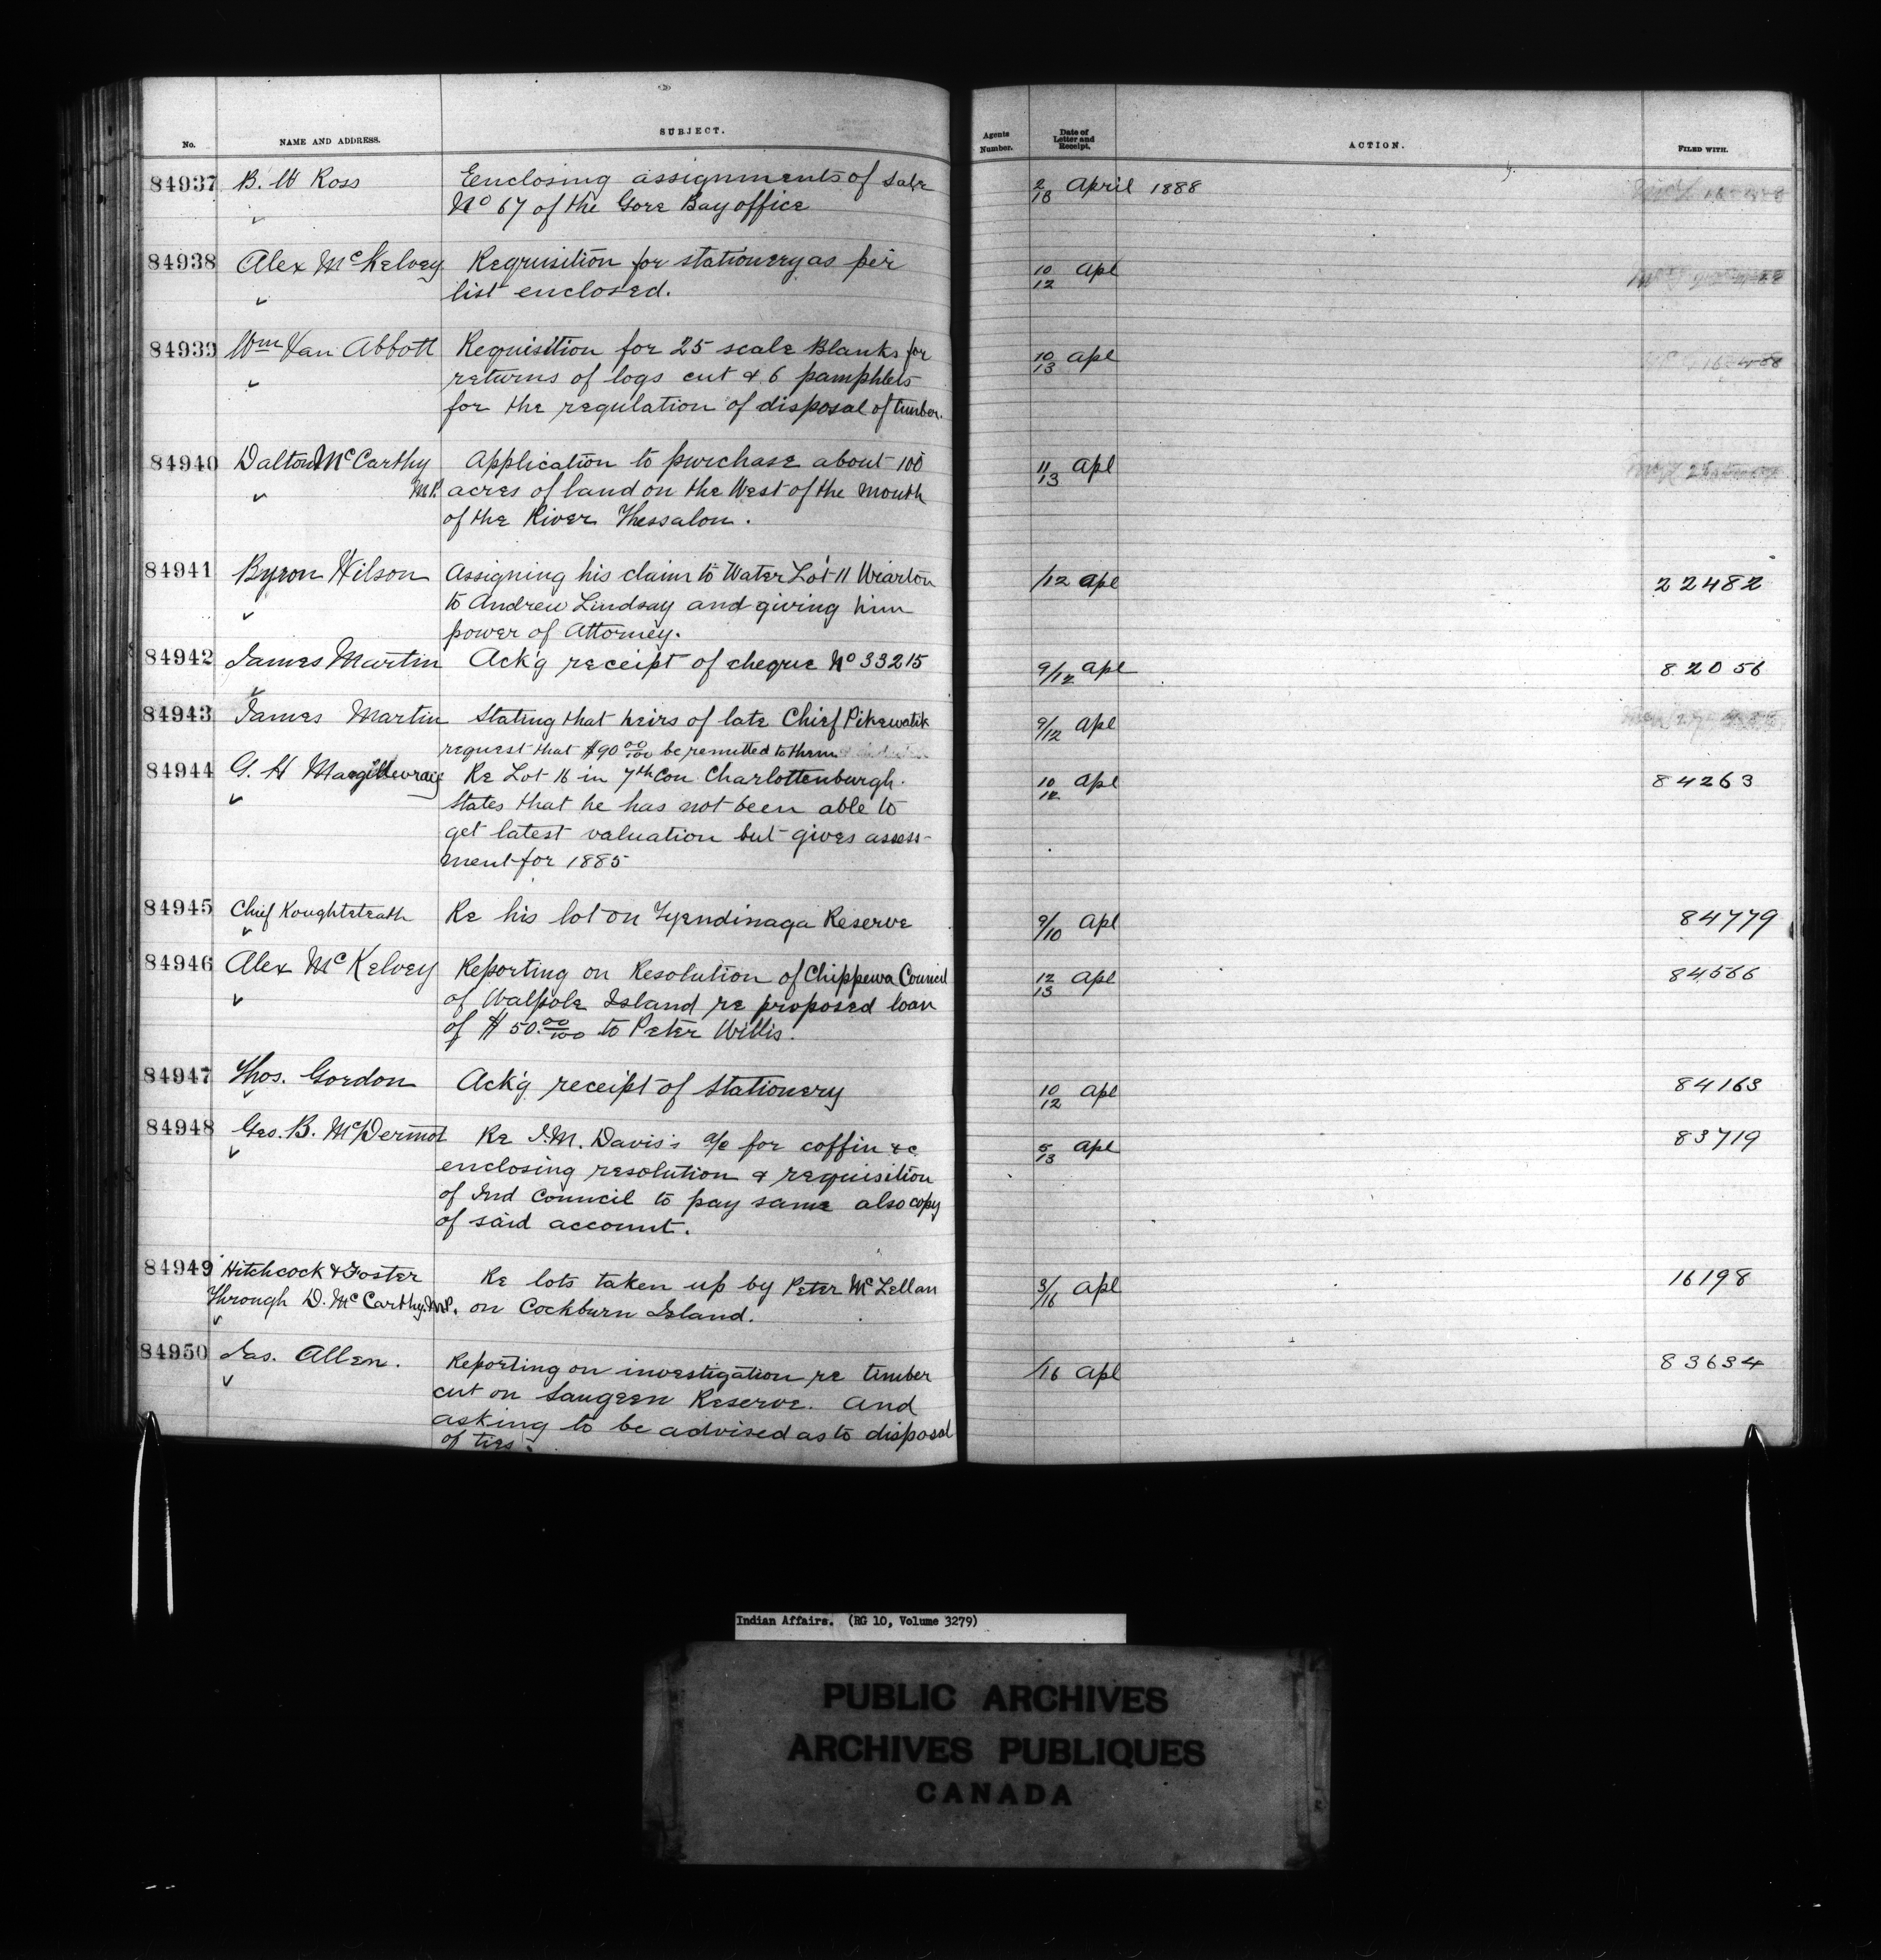 No. NAME AND ADDRESS. SUBJECT. Agents Number. Date of Letter and Receipt. ACTION. FILED WITH.
84937 B. W Ross Enclosing assignments of Sale 2/18 April 1888
No 67 of the Gore Bay office
84938 Alex McKelvey Requisition for stationery as per 10/12 Apl
list enclosed.
84939 Wm Van Abbott Requisition for 25 scale Blanks for 10/13 Apl
returns of logs cut & 6 pamphlets
for the regulation of disposal of timber.
84940 Dalton McCarthy Application to purchase about 100 11/13 Apl
M.P. acres of land on the West of the mouth
of the River Thessalon.
84941 Byron Wilson Assigning his claim to Water Lot 11 Wiarton /12 Apl 22482
to Andrew Lindsay and giving him
power of Attorney.
84942 James Martin Ack'g receipt of cheque No 33215 9/12 Apl 82056
84943 James Martin Stating that heirs of late Chief Pikewatik 9/12 Apl
request that $90 00/100 be remitted to them
84944 G. H Macgillevraiy Re Lot 16 in 7th Con Charlottenburgh. 10/12 Apl 84263
States that he has not been able to
get latest valuation but gives assess-
ment for 1885
84945 Chief Koughteteath Re his lot on Tyendinaga Reserve 9/10 Apl 84779
84946 Alex McKelvey Reporting on Resolution of Chippewa Council 12/13 Apl 84566
of Walpole Island re proposed loan
of $50.00/100 to Peter Willis.
84947 Thos. Gordon Ack'g receipt of Stationery 10/12 Apl 84163
84948 Geo. B. McDermot Re J.M. Davis's a/c for coffin &c 5/13 Apl 83719
enclosing resolution & requisition
of Ind Council to pay same also copy
of said account.
84949 Hitchcock & Foster Re lots taken up by Peter McLellan 3/16 Apl 16198
Through D. McCarthy. M.P. on Cockburn Island.
84950 Jas. Allen. Reporting on investigation re timber /16 Apl 83634
cut on Saugeen Reserve. And
asking to be advised as to disposal
of ties.
Indian Affairs. (RG 10, Volume 3279)
PUBLIC ARCHIVES
ARCHIVES PUBLIQUES
CANADA